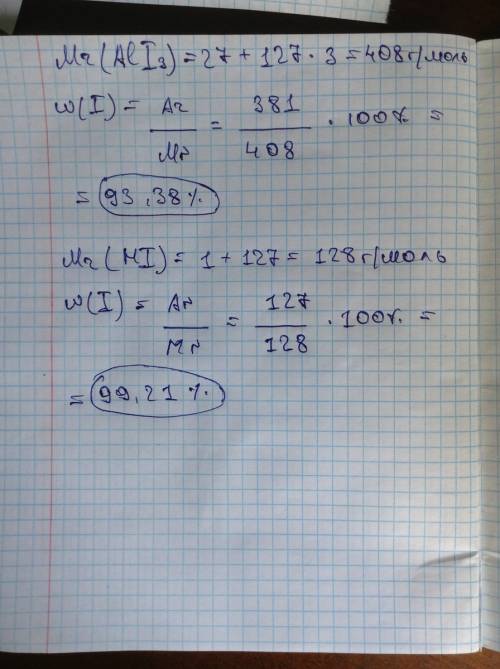 Mr(AlI₃) = 27 + 127 · 3 = 408 г/моль
w(I) = Ar/Mr = 381/408 · 100% =
= 93,38%
Mr(HI) = 1 + 127 = 128 г/моль
w(I) = Ar/Mr = 127/128 · 100% =
= 99,21%